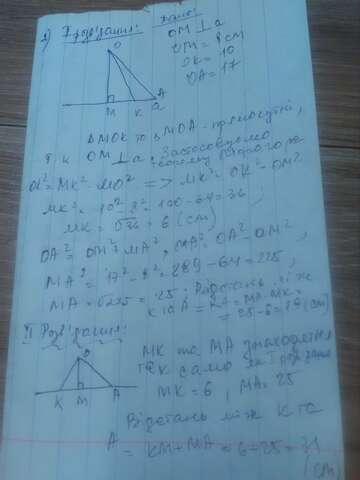 2) I Розв'язання:
Дано:
OM ⊥ a
OM = 8 см
OK = 10
OA = 17
O
M K A
a
ΔMOK та ΔMOA - прямокутні,
т.к. OM ⊥ a. Застосовуємо
теорему Піфагора
OK² = MK² + MO² => MK² = OK² - OM²
MK² = 10² - 8² = 100 - 64 = 36,
MK = √36 = 6 (cm)
OA² = OM² + MA², MA² = OA² - OM²
MA² = 17² - 8² = 289 - 64 = 225,
MA = √225 = 25. Відстань між
K та A = KA = MA - MK =
= 25 - 6 = 19 (cm)
II Розв'язання:
O
K M A
MK та MA знаходяться
так само як I розв'язання
MK = 6, MA = 25
Відстань між K та
A = KM + MA = 6 + 25 = 31
(cm)